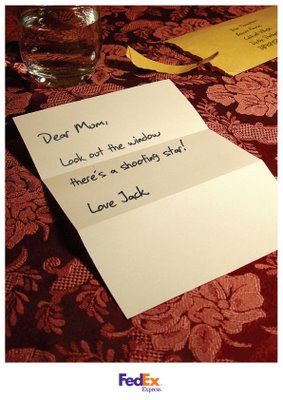 Dear Mum,
Look out the window
there's a shooting star!
Love Jack
FedEx
Express